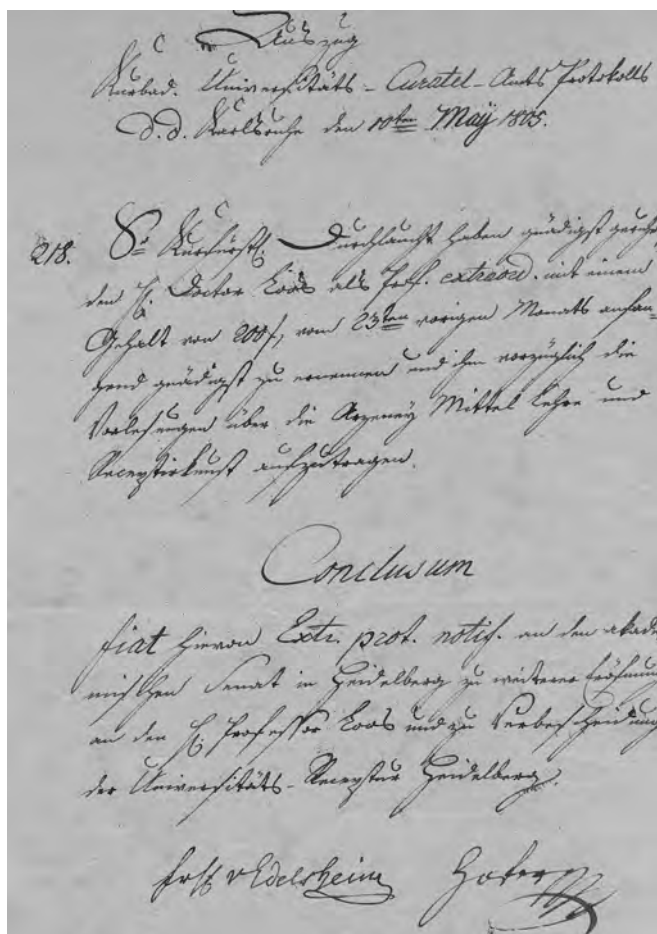 Auszug
Kurbad. Universitäts-Curatel-Amts Protokolls
d.d. Karlsruhe den 10ten Maÿ 1805.
218. Se Kurfürstl. Durchlaucht haben gnädigst geruht,
den H. Doctor Loos als Prof. extraord. mit einem
Gehalt von 200 f, vom 23ten vorigen Monats anfan-
gend gnädigst zu ernennen und ihm vorzüglich die
Vorlesungen über die Arzeneÿ Mittel Lehre und
Receptirkunst aufzutragen.
Conclusum
fiat hievon Extr. prot. notif. an den akade
mischen Senat in Heidelberg zu weiterer Eröfnung
an den H. Professor Loos und zu Verbescheidung
der Universitäts-Receptur Heidelberg.
Frhl vEdelsheim Hofer